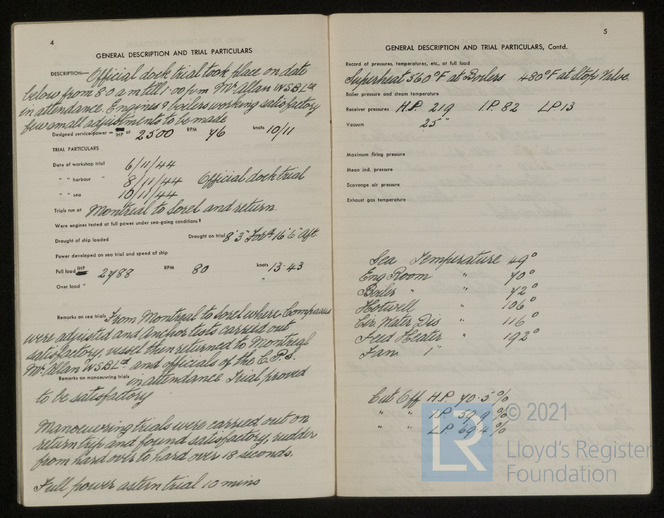 4
GENERAL DESCRIPTION AND TRIAL PARTICULARS
DESCRIPTION— Official dock trial took place on date
below from 8.0 a m till 1.00 p m Mr Allan N.S.B. Ltd
in attendance. Engines & boilers working satisfactory
few small adjustments to be made
Designed service power— HP at 2500 RPM 76 knots 10/11
TRIAL PARTICULARS
Date of workshop trial 6/11/44
" " harbour " 8/11/44 Official dock trial
" " sea 10/11/44
Trials run at Montreal to Sorel and return
Were engines tested at full power under sea-going conditions?
Draught of ship loaded Draught on trial 8'3" Ford 16'6" Aft
Power developed on sea trial and speed of ship
Full load IHP 2788 RPM 80 knots 13.43
Over load " "
Remarks on sea trials From Montreal to Sorel where Compasses
were adjusted and Anchor tests carried out
satisfactory vessel then returned to Montreal
Mr Allan N.S.B. Ltd and officials of the C.P.S.
Remarks on manœuvring trials in attendance Trial proved
to be satisfactory
Manoeuvering trials were carried out on
return trip and found satisfactory rudder
from hard over to hard over 18 seconds.
Full power astern trial 10 mins
5
GENERAL DESCRIPTION AND TRIAL PARTICULARS, Contd.
Record of pressures, temperatures, etc., at full load
Superheat 560°F at Boilers 480°F at Stop Valve
Boiler pressure and steam temperature
Receiver pressures H.P. 219 I.P. 82 L.P 13
Vacuum 25"
Maximum firing pressure
Mean ind. pressure
Scavenge air pressure
Exhaust gas temperature
Sea Temperature 49°
Eng Room " 70°
Boiler " " 72°
Hotwell " 106°
Cir. Water Dis " 116°
Feed Heater " 192°
Fan 1"
Cut Off H.P 70.5%
" " I.P
" " L.P
© 2021
LR
Lloyd's Register
Foundation